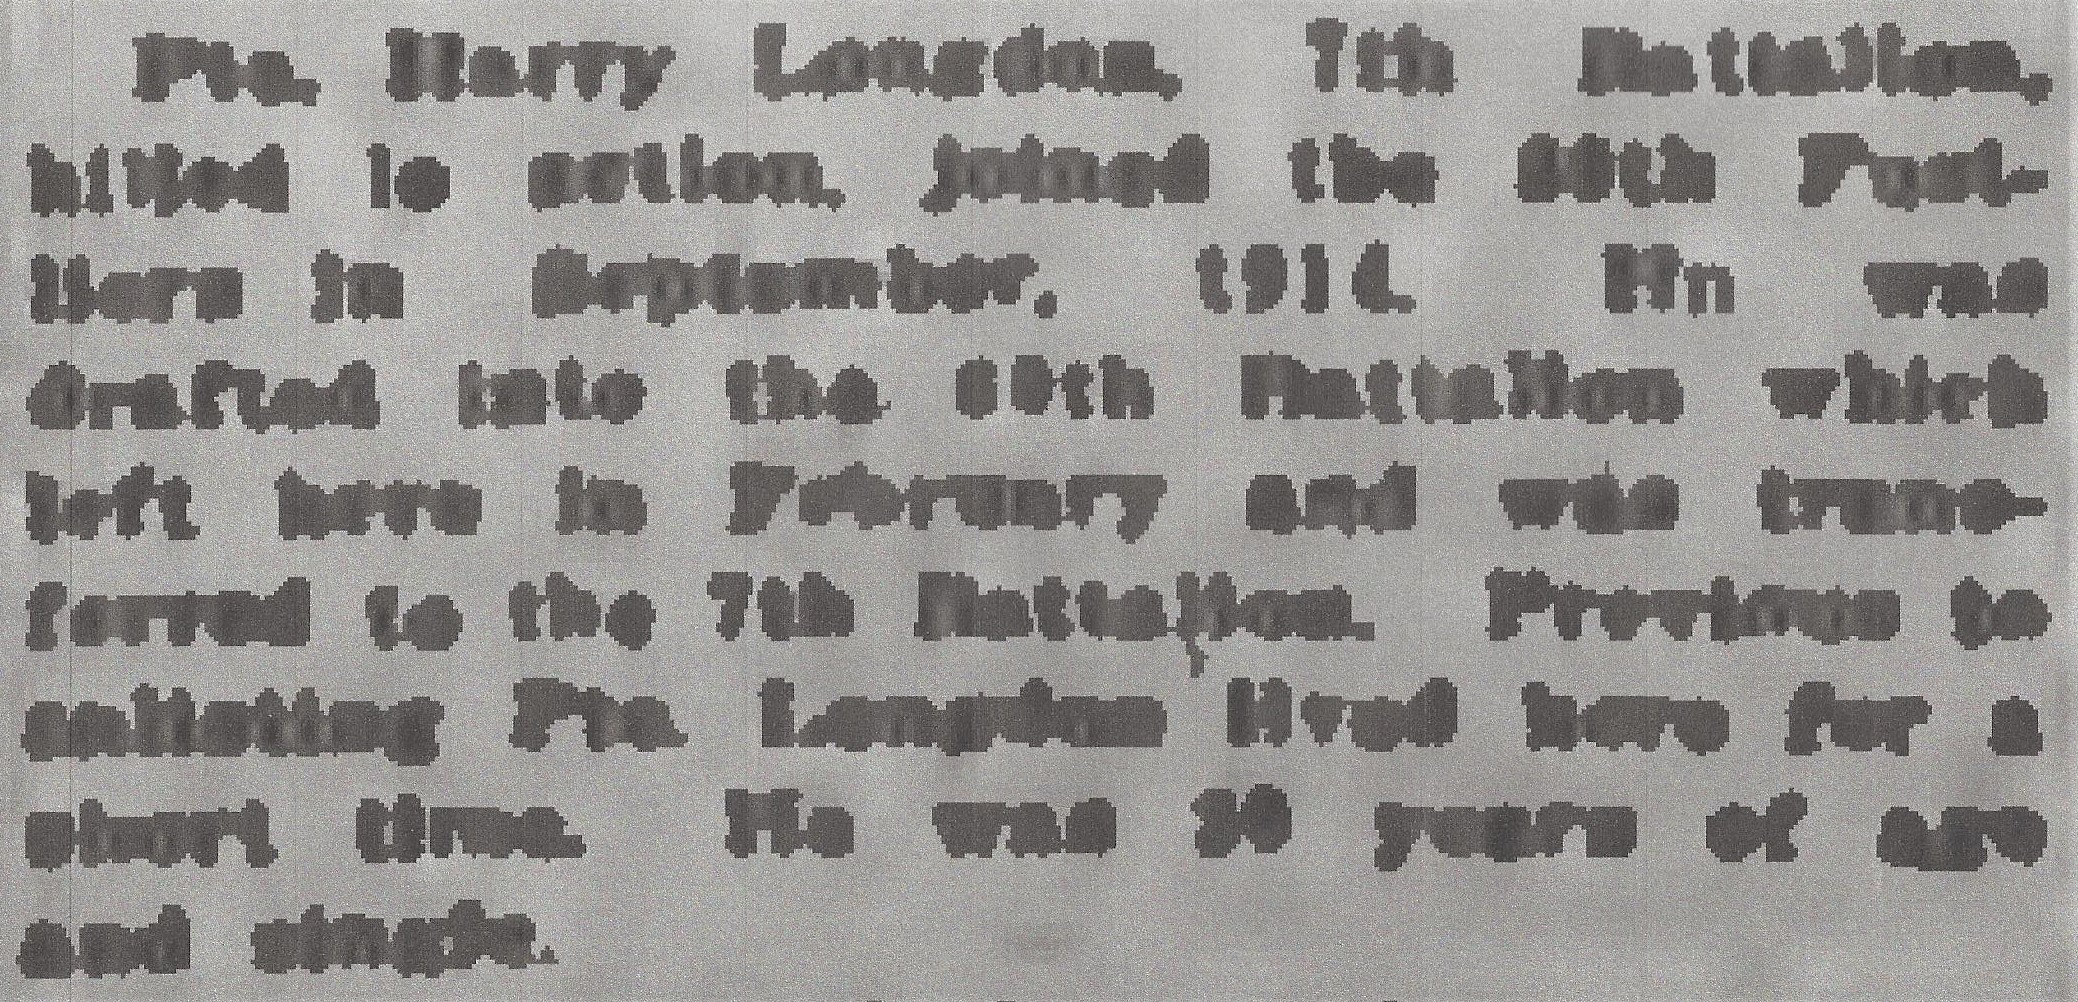 Pte. Harry Langdon, 7th Battalion,
killed in action, joined the 50th Fusi-
liers in September, 1914. He was
drafted into the 10th Battalion which
left here in February and was trans-
ferred to the 7th Battalion. Previous to
enlisting Pte. Langdon lived here for a
short time. He was 28 years of age
and single.